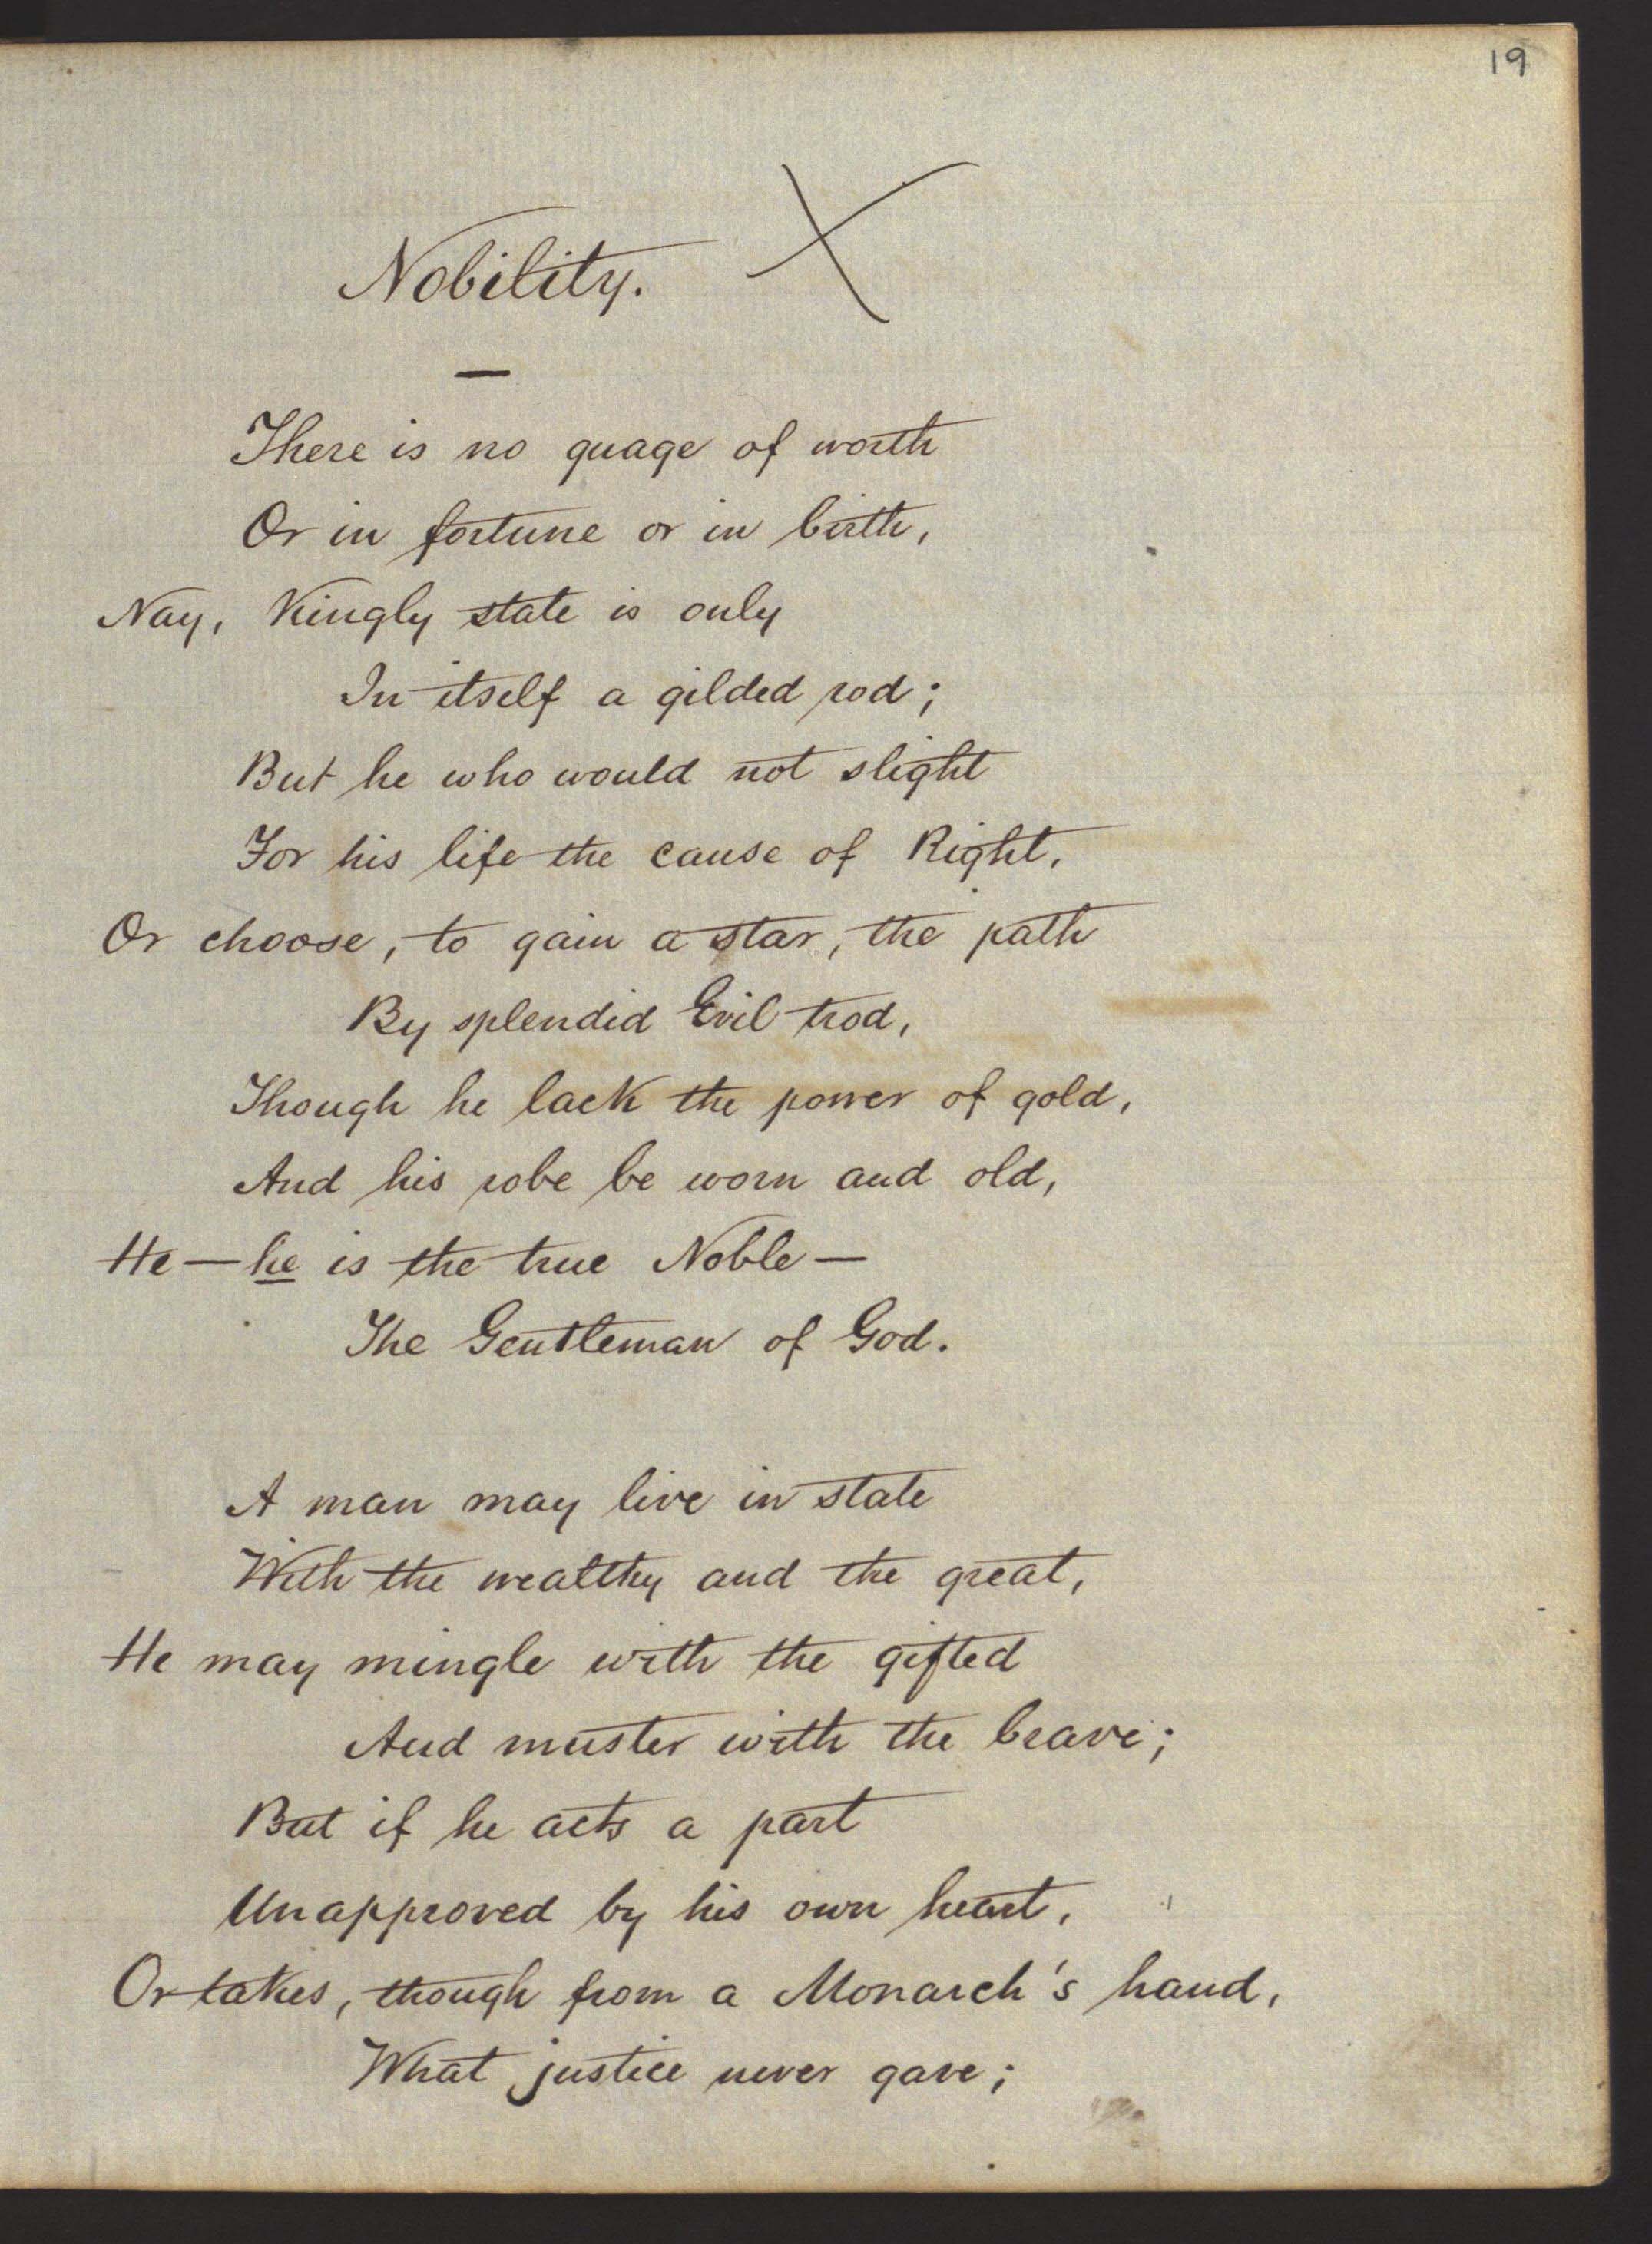 19
Nobility. X
—
There is no guage of worth
Or in fortune or in birth,
Nay, Kingly state is only
In itself a gilded rod;
But he who would not slight
For his life the cause of Right,
Or choose, to gain a star, the path
By splendid Evil trod,
Though he lack the power of gold,
And his robe be worn and old,
He — he is the true Noble —
The Gentleman of God.
A man may live in state
With the wealthy and the great,
He may mingle with the gifted
And muster with the brave;
But if he acts a part
Unapproved by his own heart,
Or takes, though from a Monarch's hand,
What justice never gave;